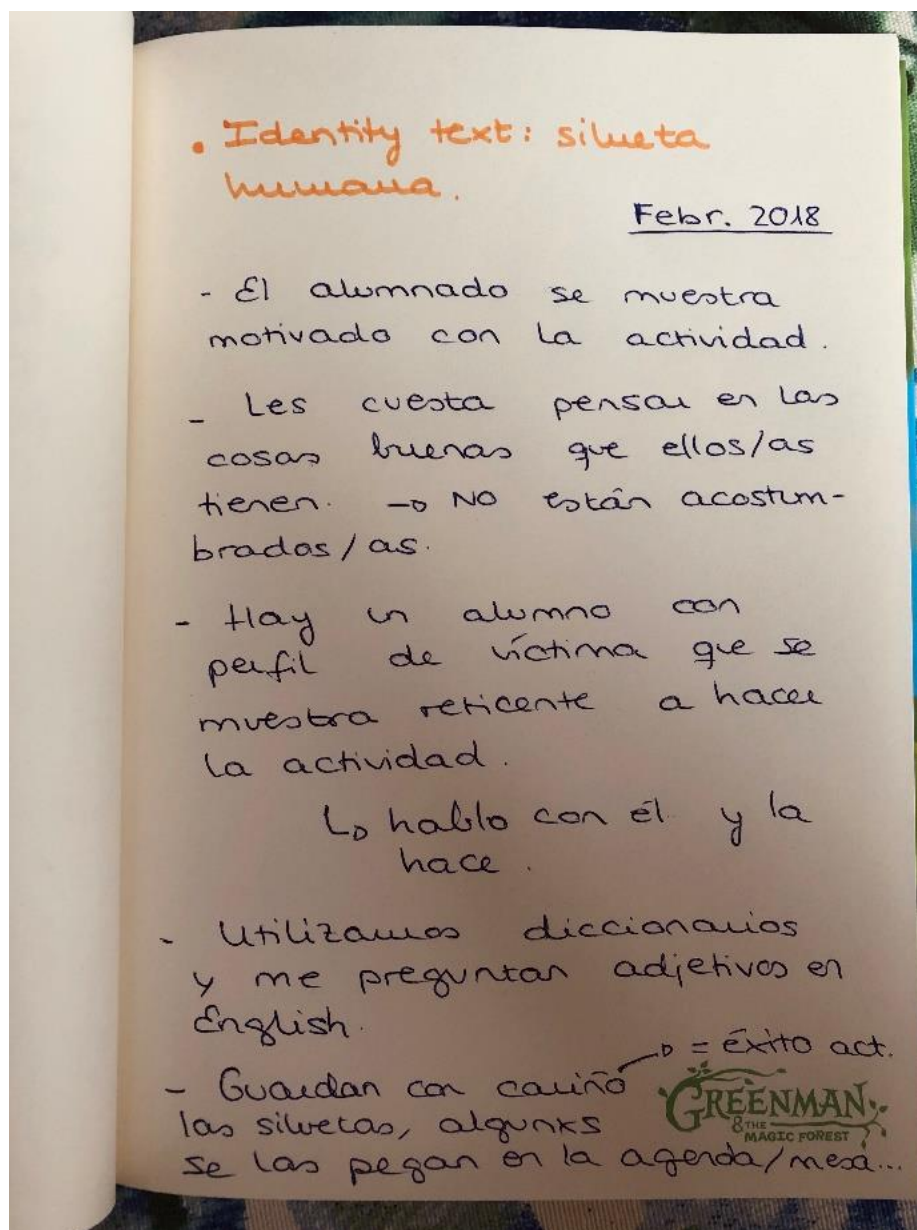 . Identity text: silueta
humana.
Febr. 2018
- El alumnado se muestra
motivado con la actividad.
- Les cuesta pensar en las
cosas buenas que ellos/as
tienen. → NO están acostum-
brados/as.
- Hay un alumno con
perfil de víctima que se
muestra reticente a hacer
la actividad.
↳ hablo con él y la
hace.
- Utilizamos diccionarios
y me preguntan adjetivos en
English.
→ = éxito act.
- Guardan con cariño
las siluetas, algunxs
se las pegan en la agenda/mesa...
GREENMAN
& THE
MAGIC FOREST